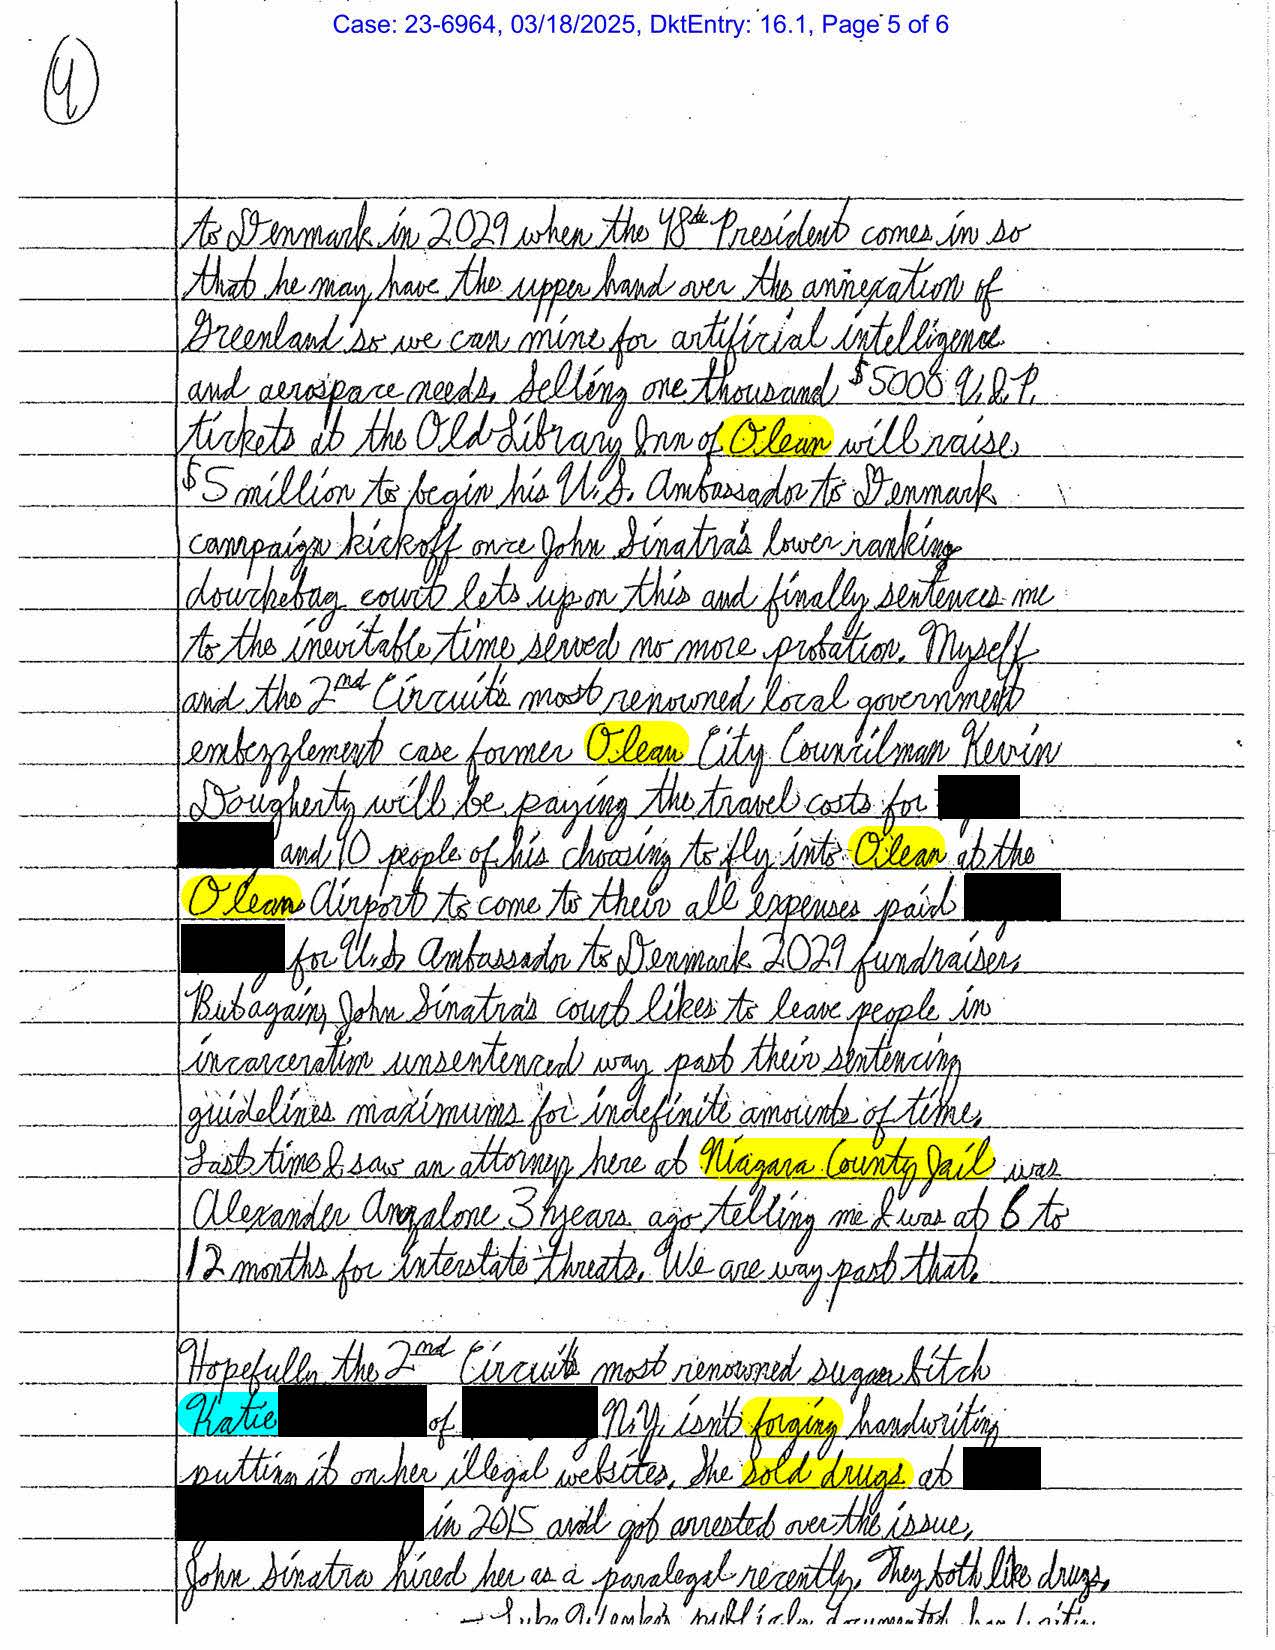 Case: 23-6964, 03/18/2025, DktEntry: 16.1, Page 5 of 6
4
to Denmark in 2029 when the 48th President comes in so
that he may have the upper hand over the annexation of
Greenland so we can mine for artificial intelligence
and aerospace needs. Selling one thousand $5000 V.I.P.
tickets at the Old Library Inn of Olean will raise
$5 million to begin his U.S. Ambassador to Denmark
campaign kickoff once John Sinatra's lower ranking
douchebag court lets up on this and finally sentences me
to the inevitable time served no more probation. Myself
and the 2nd Circuit's most renowned local government
embezzlement case former Olean City Councilman Kevin
Dougherty will be paying the travel costs for
and 10 people of his choosing to fly into Olean at the
Olean Airport to come to their all expenses paid
for U.S. Ambassador to Denmark 2029 fundraiser.
But again, John Sinatra's court likes to leave people in
incarceration unsentenced way past their sentencing
guidelines maximums for indefinite amounts of time.
Last time I saw an attorney here at Niagara County Jail was
Alexander Anzalone 3 years ago telling me I was at 6 to
12 months for interstate threats. We are way past that.
Hopefully the 2nd Circuit's most renowned sugar bitch
Katie of N.Y. isn't forging handwriting
putting it on her illegal websites. She sold drugs at
in 2015 and got arrested over the issue.
John Sinatra hired her as a paralegal recently. They both like drugs.